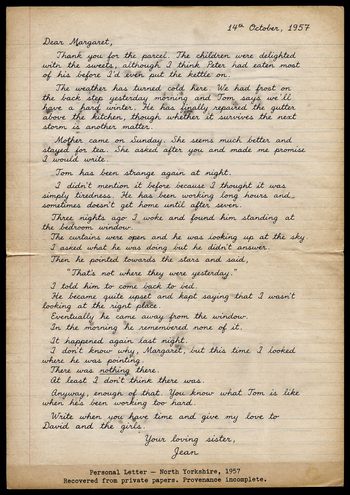 14th October, 1957
Dear Margaret,
Thank you for the parcel. The children were delighted
with the sweets, although I think Peter had eaten most
of his before I'd even put the kettle on.
The weather has turned cold here. We had frost on
the back step yesterday morning and Tom says we'll
have a hard winter. He has finally repaired the gutter
above the kitchen, though whether it survives the next
storm is another matter.
Mother came on Sunday. She seems much better and
stayed for tea. She asked after you and made me promise
I would write.
Tom has been strange again at night.
I didn't mention it before because I thought it was
simply tiredness. He has been working long hours and
sometimes doesn't get home until after seven.
Three nights ago I woke and found him standing at
the bedroom window.
The curtains were open and he was looking up at the sky.
I asked what he was doing but he didn't answer.
Then he pointed towards the stars and said,
"That's not where they were yesterday."
I told him to come back to bed.
He became quite upset and kept saying that I wasn't
looking at the right place.
Eventually he came away from the window.
In the morning he remembered none of it.
It happened again last night.
I don't know why, Margaret, but this time I looked
where he was pointing.
There was nothing there.
At least I don't think there was.
Anyway, enough of that. You know what Tom is like
when he's been working too hard.
Write when you have time and give my love to
David and the girls.
Your loving sister,
Jean
Personal Letter — North Yorkshire, 1957
Recovered from private papers. Provenance incomplete.